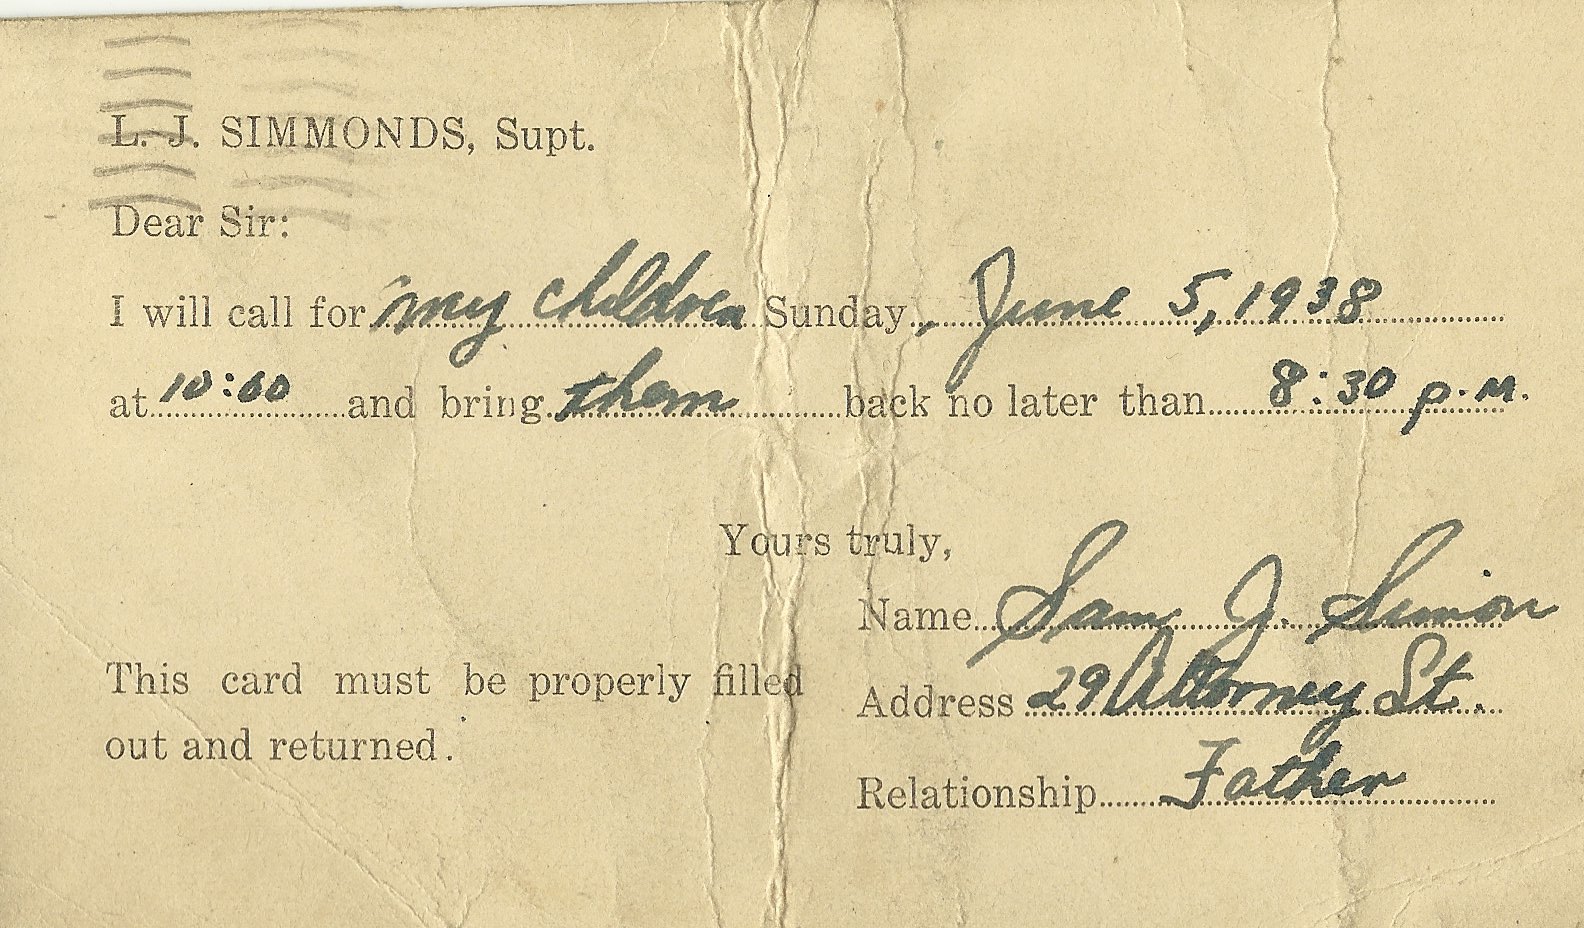 L. J. SIMMONDS, Supt.
Dear Sir:
I will call for my children Sunday, June 5, 1938
at 10:00 and bring them back no later than 8:30 p.m.
Yours truly,
Name Sam J. Simon
This card must be properly filled
out and returned.
Address 29 Attorney St.
Relationship Father